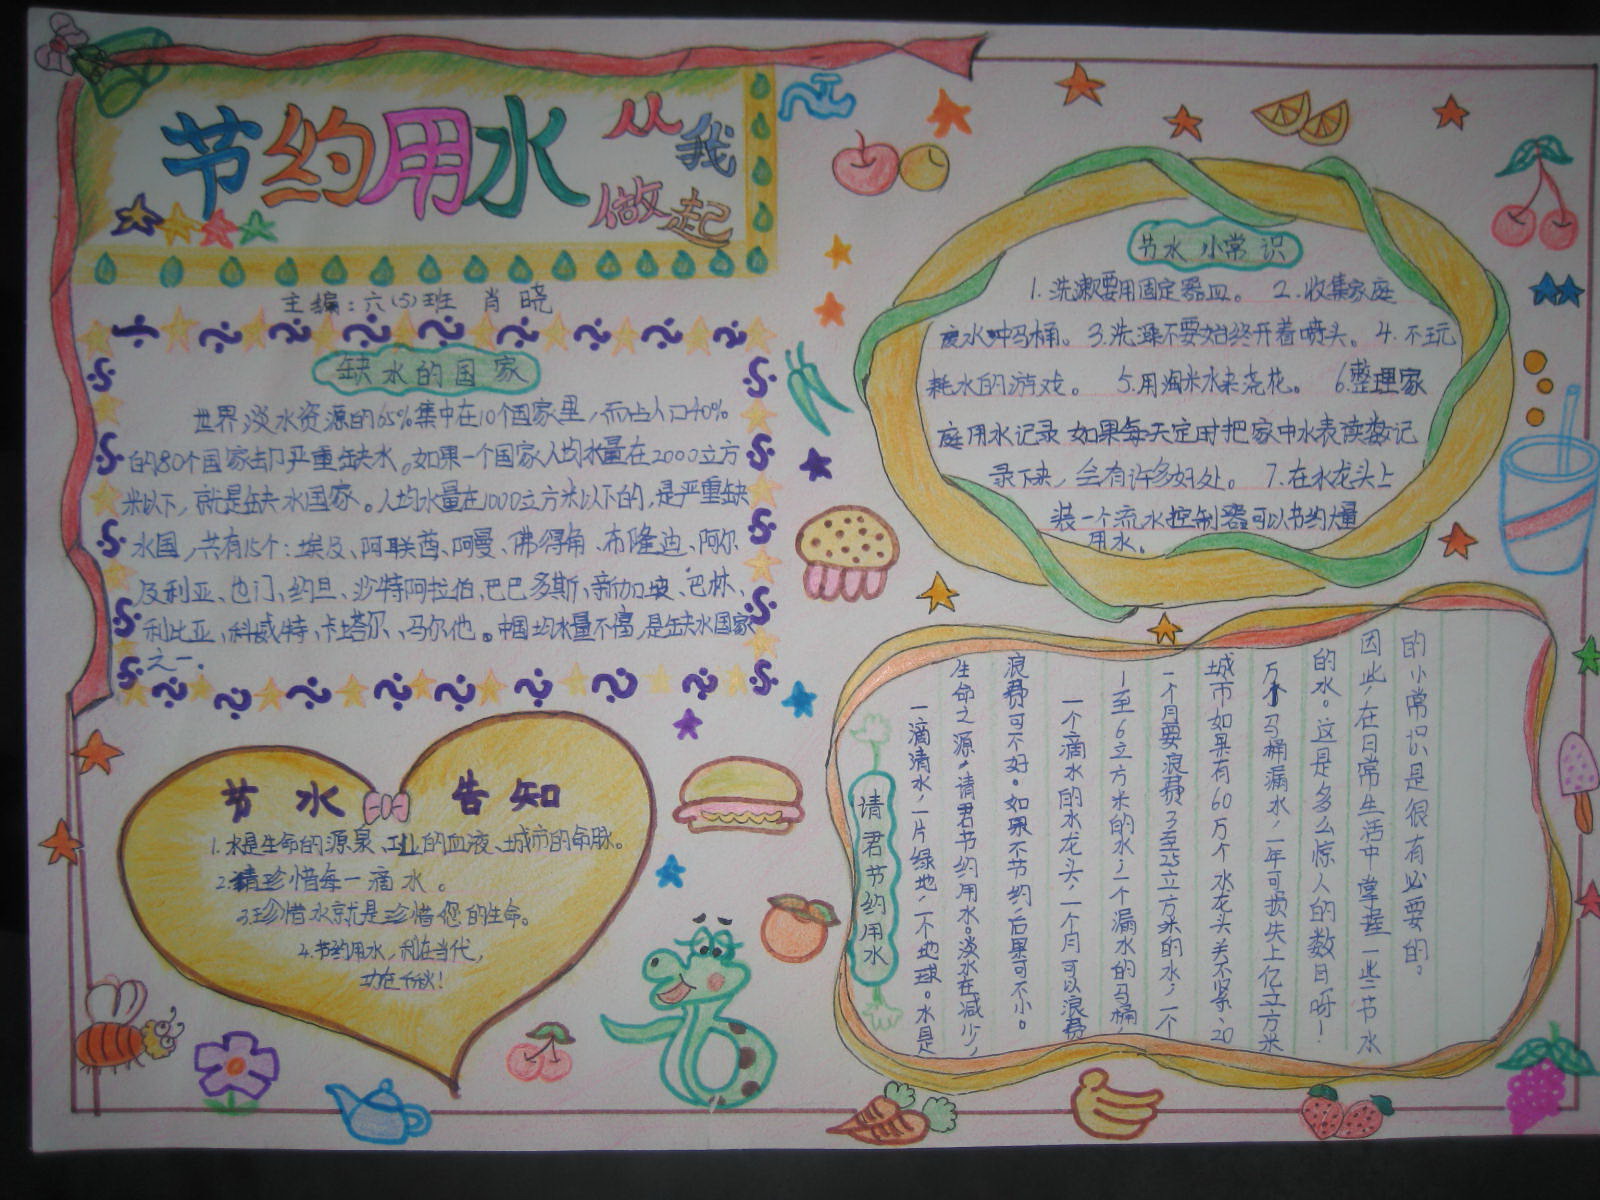 节约用水 从我
做起
主编：六(5)班 肖晓
缺水的国家
世界淡水资源的65%集中在10个国家里，而占人口40%
的80个国家却严重缺水。如果一个国家人均水量在2000立方
米以下，就是缺水国家。人均水量在1000立方米以下的，是严重缺
水国，共有15个：埃及、阿联酋、阿曼、佛得角、布隆迪、阿尔
及利亚、也门、约旦、沙特阿拉伯、巴巴多斯、新加坡、巴林、
利比亚、科威特、卡塔尔、马尔他。中国均水量不富，是缺水国家
之一.
节水 小常识
1.洗漱要用固定器皿。 2.收集家庭
废水冲马桶。3.洗澡不要始终开着喷头。4.不玩
耗水的游戏。 5.用淘米水来浇花。 6.整理家
庭用水记录 如果每天定时把家中水表读数记
录下来，会有许多好处。 7.在水龙头上
装一个流水控制器可以节约大量
用水。
节水 告知
1.水是生命的源泉、工业的血液、城市的命脉。
2.请珍惜每一滴水。
3.珍惜水就是珍惜您的生命。
4.节约用水，利在当代，
功在千秋！
请君节约用水
一滴清水，一片绿地，一个地球。水是
生命之源，请君节约用水。淡水在减少，
浪费可不好。如果不节约，后果可不小。
一个滴水的水龙头，一个月可以浪费
1至6立方米的水，一个漏水的马桶，
一个月要浪费3至25立方米的水，一个
城市如果有60万个水龙头关不紧、20
万个马桶漏水，一年可损失上亿立方米
的水。这是多么惊人的数目呀！
因此，在日常生活中掌握一些节水
的小常识是很有必要的。